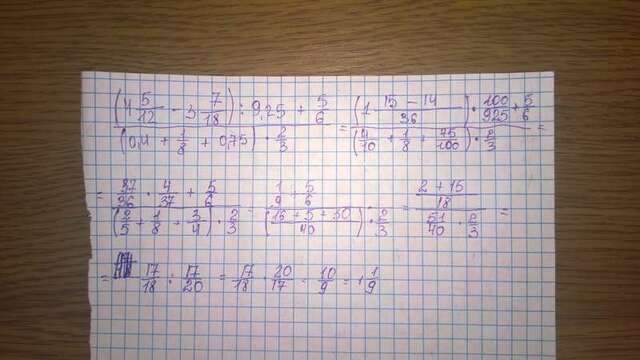 ((4 5/12 - 3 7/18) : 9,25 + 5/6) / ((0,4 + 1/8 + 0,75) · 2/3) = ((1 (15 - 14)/36) · 100/925 + 5/6) / ((4/10 + 1/8 + 75/100) · 2/3) =
= (37/36 · 4/37 + 5/6) / ((2/5 + 1/8 + 3/4) · 2/3) = (1/9 + 5/6) / ((16 + 5 + 30)/40 · 2/3) = ((2 + 15)/18) / (51/40 · 2/3) =
= 17/18 : 17/20 = 17/18 · 20/17 = 10/9 = 1 1/9